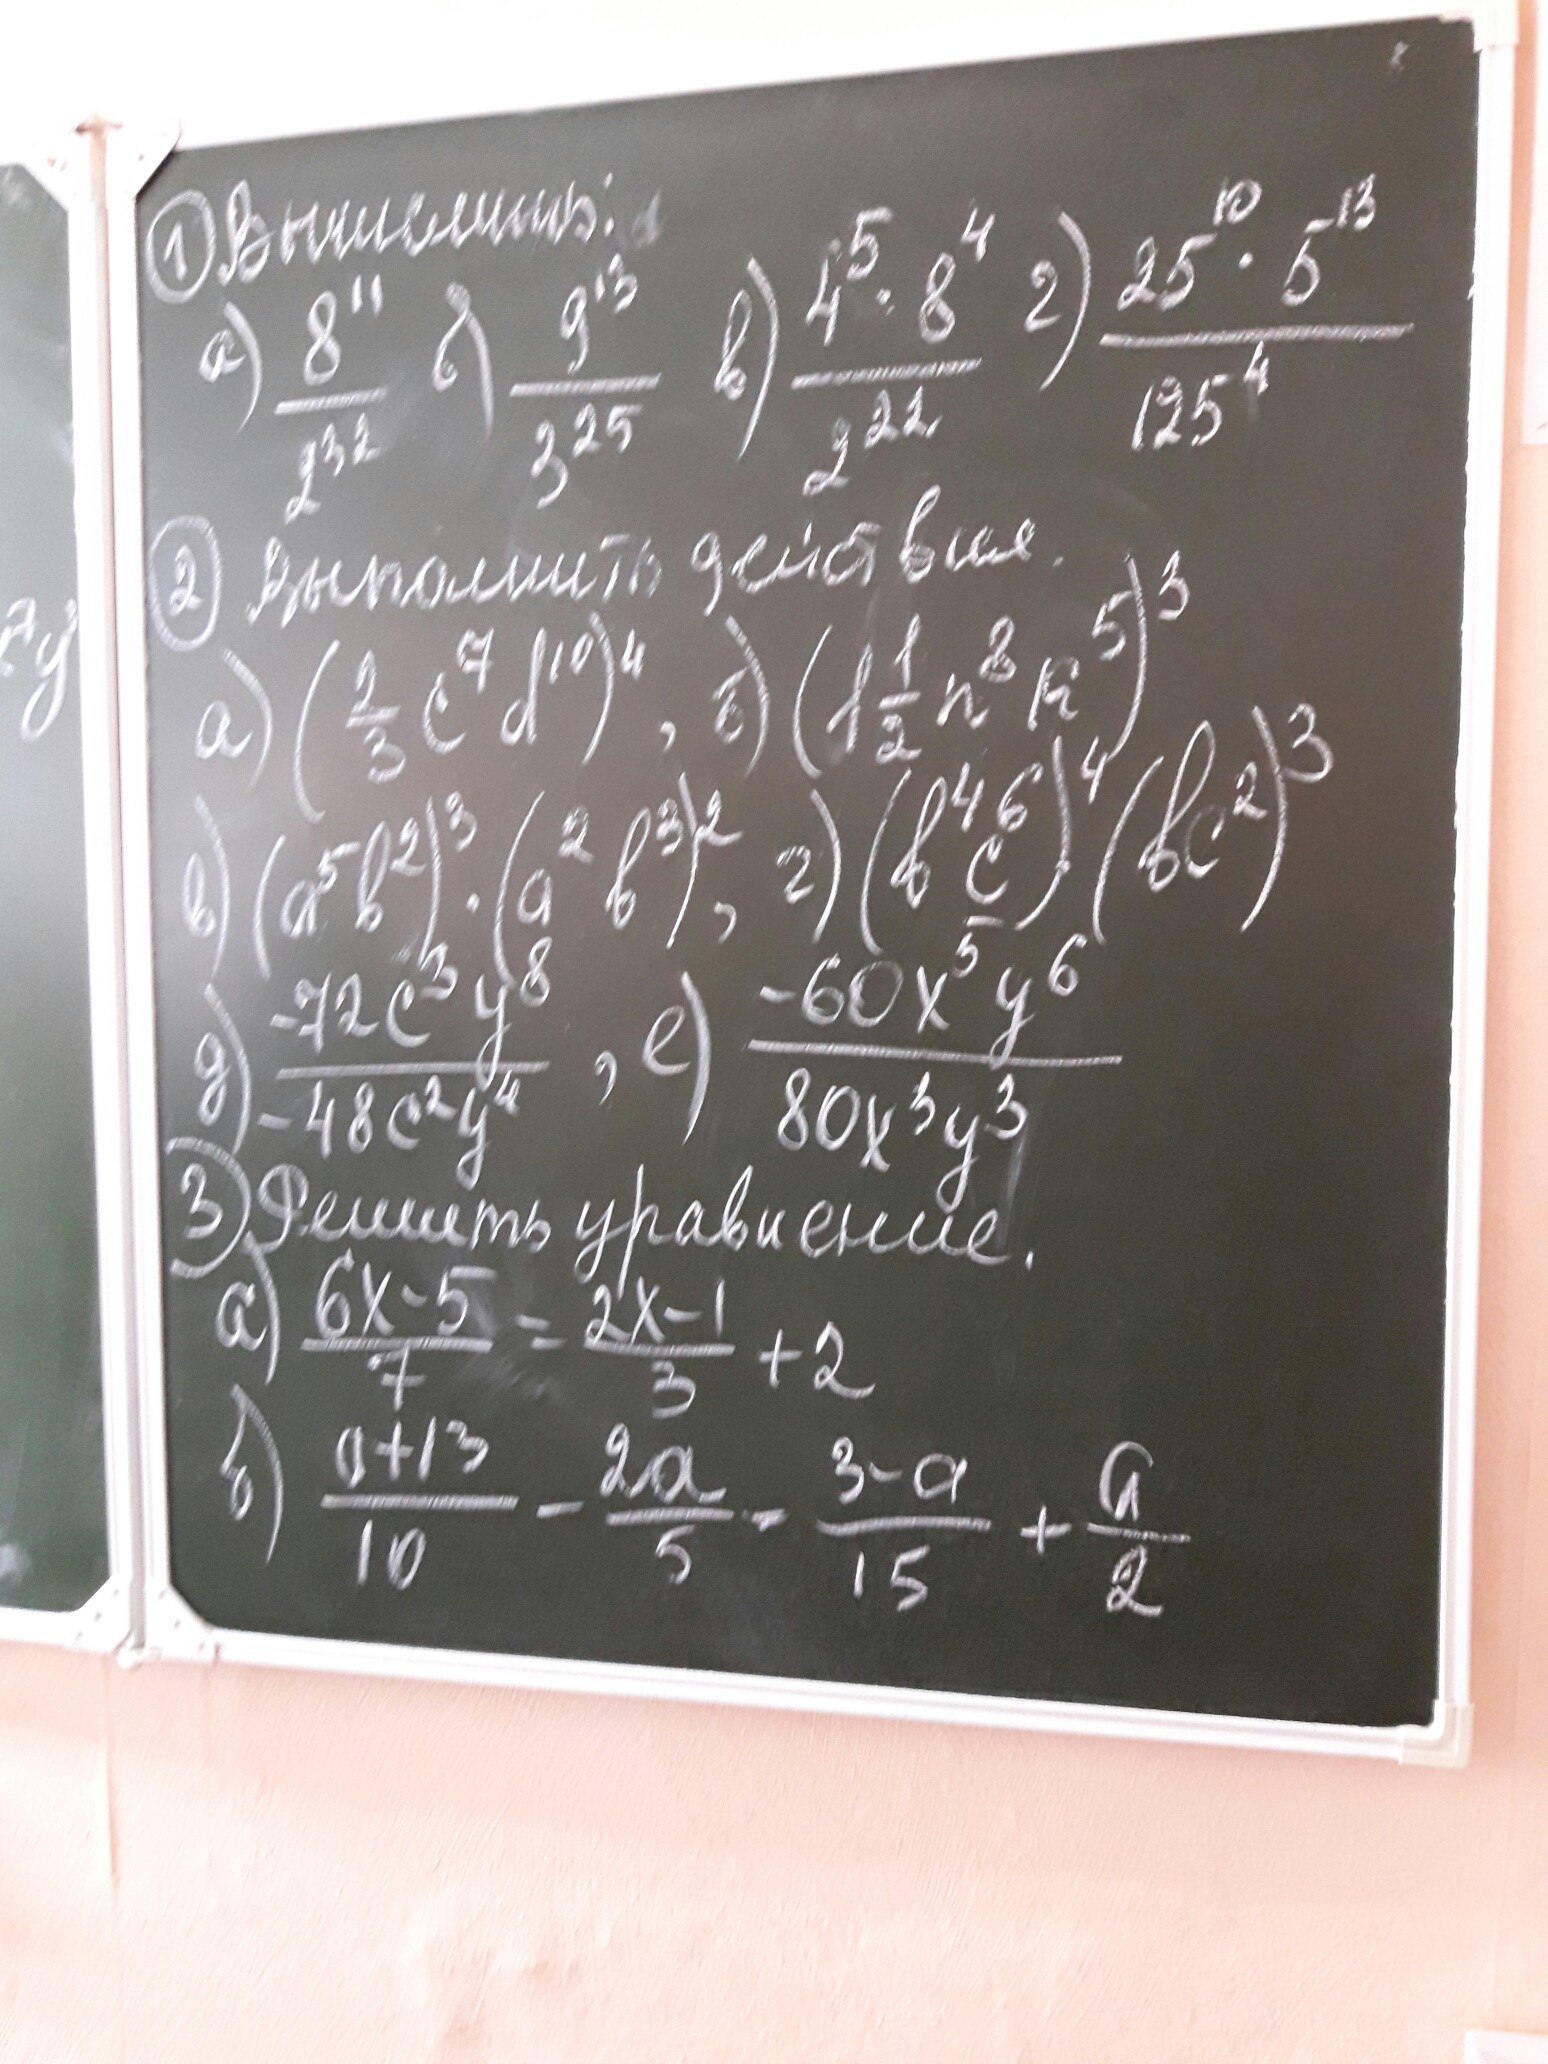 ① Вычислить:
а) 8¹¹/2³² б) 9¹³/3²⁵ в) 4⁵·8⁴/2²² г) 25¹⁰·5¹³/125⁴
② Выполнить действие.
а) (2/3 c⁷d¹⁰)⁴, б) (1 1/2 n⁸k⁵)³
в) (a⁵b²)³·(a²b³)², г) (b⁴c⁶)⁴·(bc²)³
д) -72c³y⁸/-48c²y⁴, е) -60x⁵y⁶/80x³y³
③ Решить уравнение.
а) 6x-5/7 = 2x-1/3 +2
б) a+13/10 - 2a/5 - 3-a/15 + a/2